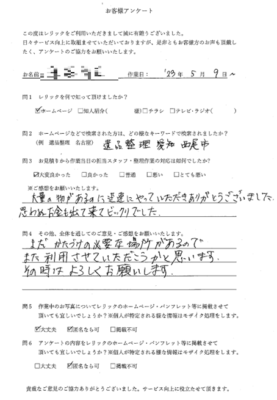 お客様アンケート
この度はレリックをご利用いただきまして誠に有難うございました。
日々サービス向上に取組ませていただいておりますが、是非ともお客様方のお声も頂戴し
たく、アンケートのご協力をお願いいたします。
お名前
作業日：'23年 5月 9日～
問1 レリックを何で知って頂けましたか？
☑ホームページ □知人紹介( 様) □チラシ □テレビ・ラジオ( )
問2 ホームページなどで検索された方は、どの様なキーワードで検索されましたか？
(例 遺品整理 名古屋)
遺品整理 愛知 西尾市
問3 お見積もりから作業当日の担当スタッフ・整理作業の対応は如何でしたか？
☑大変良かった □良かった □普通 □悪い □とても悪い
※ご感想をお願いいたします。
大量の物があるのに迅速にやっていただきありがとうございました。
思わぬお金も出て来てビックリでした。
問4 その他、全体を通してのご意見・ご感想をお願いいたします。
まだ かたづけの必要な場所があるので
また利用させていただこうかと思います。
その時は よろしくお願いします。
問5 作業中のお写真についてレリックのホームページ・パンフレット等に掲載させて
頂いても宜しいでしょうか？※個人が特定される様な情報はモザイク処理をします。
☑大丈夫 ☑匿名なら可 □掲載不可
問6 アンケートの内容をレリックのホームページ・パンフレット等に掲載させて
頂いても宜しいでしょうか？※個人が特定される様な情報はモザイク処理をします。
☑大丈夫 ☑匿名なら可 □掲載不可
貴重なご意見のご協力ありがとうございました。サービス向上に役立たせて頂きます。